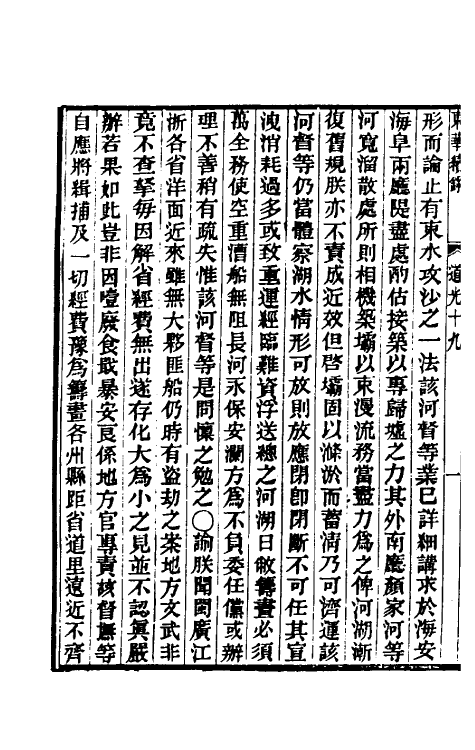 東華續錄 道光十九 一
形而論止有束水攻沙之一法該河督等業已詳細講求於海安
海阜兩廳隄盡處酌估接築以專歸墟之力其外南廳顏家河等
河寬溜散處所則相機築壩以束漫流務當盡力為之俾河湖漸
復舊規朕亦不責成近效但啓壩固以滌淤而蓄清乃可濟運該
河督等仍當體察湖水情形可放則放應閉卽閉斷不可任其宣
洩消耗過多或致重運經臨難資浮送總之河湖日敝籌畫必須
萬全務使空重漕船無阻長河永保安瀾方為不負委任儻或辦
理不善稍有疏失惟該河督等是問懍之勉之○諭朕聞閩廣江
浙各省洋面近來雖無大夥匪船仍時有盜劫之案地方文武非
竟不查拏每因解省經費無出遂存化大為小之見並不認眞嚴
辦若果如此豈非因噎廢食戢暴安良係地方官專責該督撫等
自應將緝捕及一切經費豫為籌畫各州縣距省道里遠近不齊